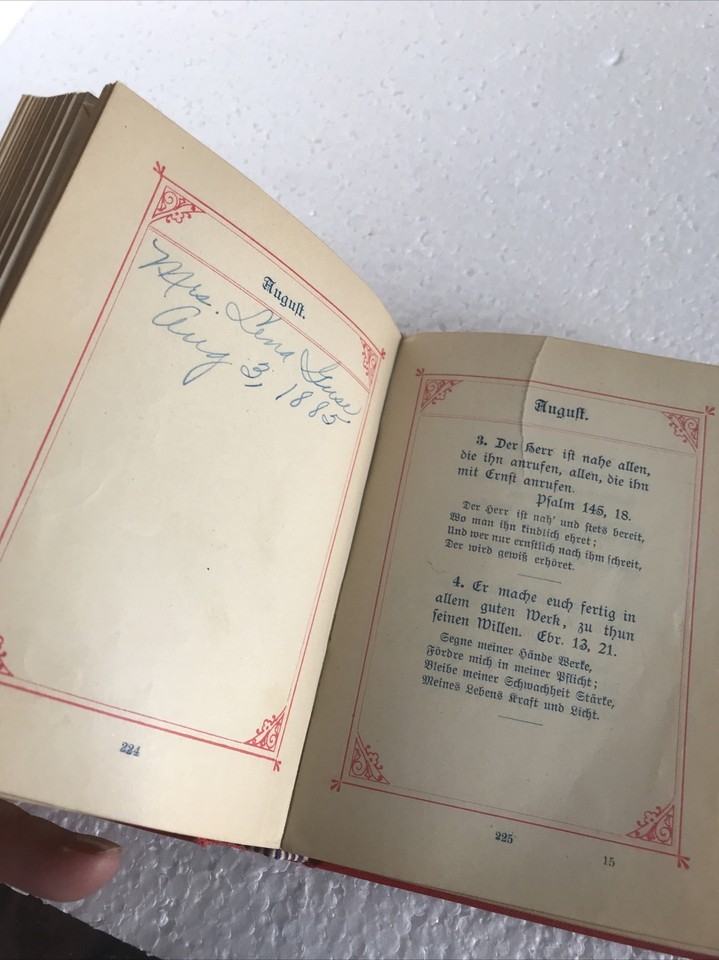 August.
Mrs. Lena
Aug 3, 1885
224
August.
3. Der Herr ist nahe allen,
die ihn anrufen, allen, die ihn
mit Ernst anrufen.
Psalm 145, 18.
Der Herr ist nah' und stets bereit,
Wo man ihn kindlich ehret;
Und wer nur ernstlich nach ihm schreit,
Der wird gewiß erhöret.
4. Er mache euch fertig in
allem guten Werk, zu thun
seinen Willen. Ebr. 13, 21.
Segne meiner Hände Werke,
Fördre mich in meiner Pflicht;
Bleibe meiner Schwachheit Stärke,
Meines Lebens Kraft und Licht.
225
15